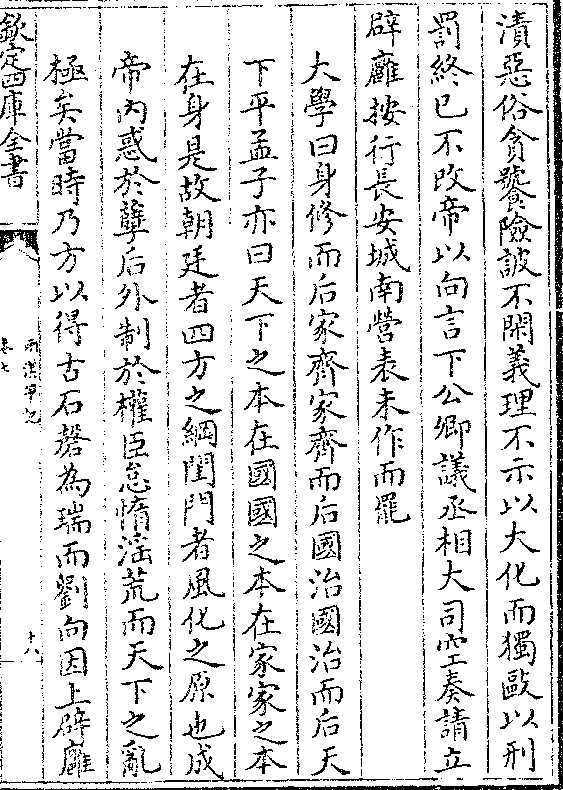 漬惡俗貪饕險詖不閑義理不示以大化而獨敺以刑
罰終已不改帝以向言下公卿議丞相大司空奏請立
辟廱按行長安城南營表未作而罷
大學曰身修而后家齊家齊而后國治國治而后天
下平孟子亦曰天下之本在國國之本在家家之本
在身是故朝廷者四方之綱閨門者風化之原也成
帝内惑於孽后外制於權臣怠惰淫荒而天下之亂
極矣當時乃方以得古石磬為瑞而劉向因上辟廱
欽定四庫全書
兩漢筆記
卷七
十八